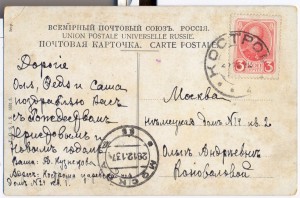 ВСЕМІРНЫЙ ПОЧТОВЫЙ СОЮЗЪ. РОССІЯ.
UNION POSTALE UNIVERSELLE RUSSIE.
ПОЧТОВАЯ КАРТОЧКА. CARTE POSTALE
Дорогіе
Оля, Федя и Саша
поздравляю Васъ
съ Рождествомъ
Христовымъ и
Новымъ годомъ
Ваша А. Кузнецова
Адресъ: Кострома
домъ №21 кв. 1.
Москва
Нѣмецкая домъ №19 кв. 2
Ольгѣ Андреевнѣ
Коноваловой
КОСТРО
3
3
МОСКВА
26.12.13